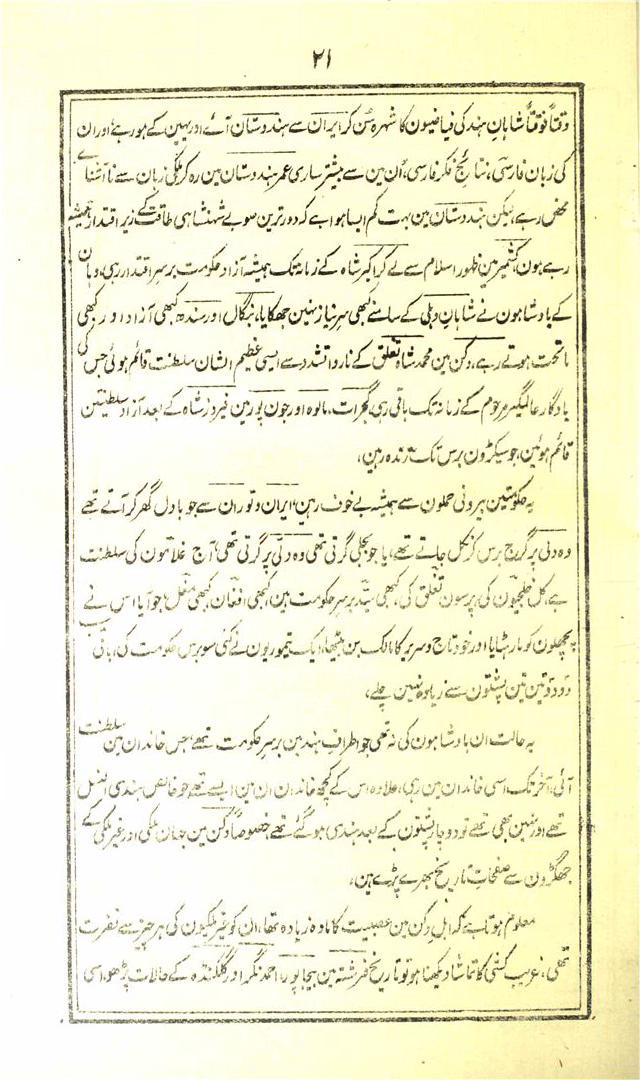 ۲۱
وقتاً فوقتاً شاہانِ ہند کی فیاضیون کا شہرہ سُن کر ایران سے ہندوستان آئے اور یہین کے ہو رہے، اور ان
کی زبان فارسی، نتائجِ فکر فارسی، اُن مین سے بیشتر ساری عمر ہندوستان مین رہ کر ملکی زبان سے ناآشنائے
محض رہے، لیکن ہندوستان مین بہت کم ایسا ہوا ہے کہ دور ترین صوبے شہنشاہی طاقت کے زیر اقتدار ہمیشہ
رہے ہون، کشمیر مین ظہورِ اسلام سے لے کر اکبر شاہ کے زمانہ تک ہمیشہ آزاد حکومت برسرِ اقتدار رہی، وہان
کے بادشاہون نے شاہانِ دہلی کے سامنے کبھی سرِ نیاز نہین جھکایا، بنگال اور سندھ کبھی آزاد اور کبھی
ماتحت ہوتے رہے، دکن مین محمد شاہ تغلق کے ناروا تشدد سے ایسی عظیم الشان سلطنت قائم ہوئی جس کی
یادگار عالمگیر مرحوم کے زمانہ تک باقی رہی، گجرات، مالوہ اور جون پور مین فیروز شاہ کے بعد آزاد سلطنتین
قائم ہوئین، جو سیکڑون برس تک زندہ رہین،
یہ حکومتین بیرونی حملون سے ہمیشہ بے خوف رہین، ایران و توران سے جو بادل گھر کر آتے تھے
وہ دلی پر گرج برس کر نکل جاتے تھے، یا جو بجلی گرتی تھی وہ دلی پر گرتی تھی، آج غلامون کی سلطنت
ہے، کل خلجیون کی، پرسون تغلق کی، کبھی سید برسر حکومت ہین، کبھی افغان کبھی مغل، جو آیا اس نے
پچھلون کو مار ہٹایا اور خود تاج و سریر کا مالک بن بیٹھا، ایک تیموریون نے کئی سو برس حکومت کی، باقی سب
دو دو تین تین پشتون سے زیادہ نہین چلے،
یہ حالت ان بادشاہون کی نہ تھی جو اطراف ہند مین برسر حکومت تھے، جس خاندان مین سلطنت
آئی، آخر تک اسی خاندان مین رہی، علاوہ اس کے کچھ خاندان ان مین ایسے تھے جو خالص ہندی النسل
تھے اور نہین بھی تھے تو دو چار پشتون کے بعد ہندی ہو گئے تھے، خصوصاً دکن مین جہان ملکی اور غیر ملکی کے
جھگڑون سے صفحاتِ تاریخ بھرے پڑے ہین،
معلوم ہوتا ہے کہ اہلِ دکن مین عصبیت کا مادہ زیادہ تھا، ان کو غیر ملکیون کی ہر چیز سے نفرت
تھی، غریب کشی کا تماشا دیکھنا ہو تو تاریخ فرشتہ مین بیجاپور، احمد نگر اور گلکنڈہ کے حالات پڑھو، اسی